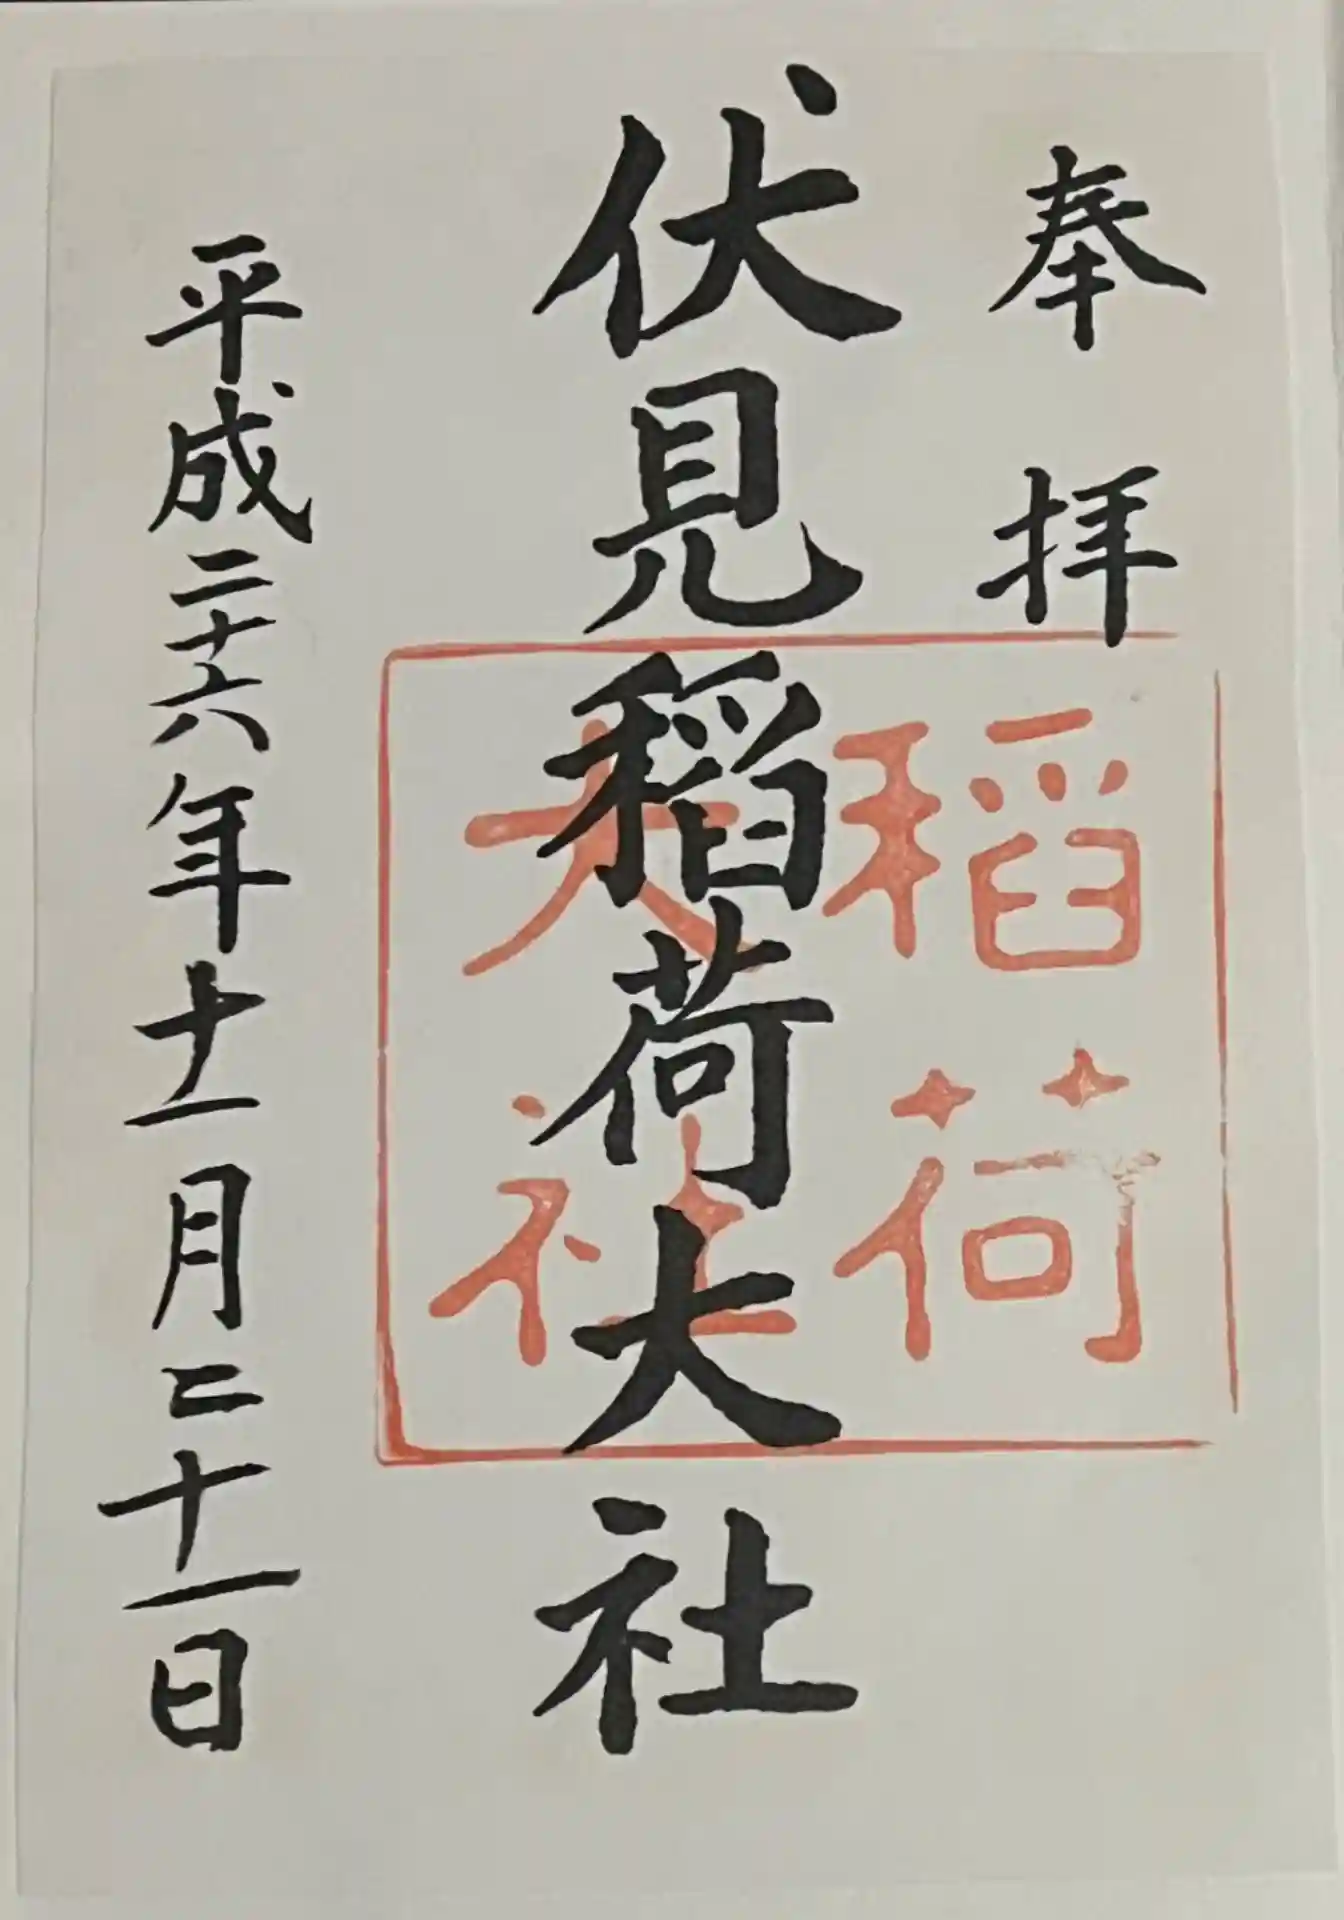 奉拝
伏見稲荷大社
稲荷
大社
平成二十六年十一月二十一日